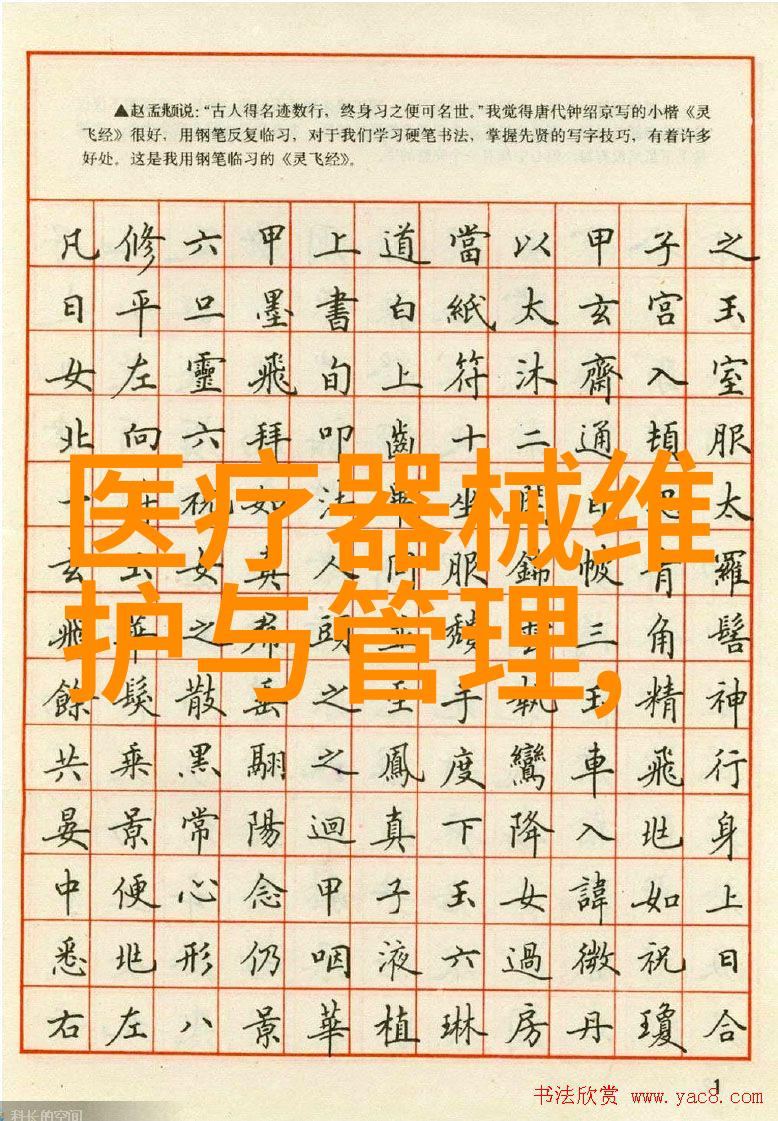 ▲赵孟頫说：“古人得名迹数行，终身习之便可名世。”我觉得唐代钟绍京写的小楷《灵
飞经》很好，用钢笔反复临习，对于我们学习硬笔书法，掌握先贤的写字技巧，有着许多
好处。这是我用钢笔临习的《灵飞经》。
凡修六甲上道當以甲子之
日平旦墨書白紙太玄宮玉
女左靈飛旬上符沐齋入室
北向六拜叩齒十二通頓服
祝如法坐太
玄玉女真人同服錦帔青羅
飛華之頭三角髻
餘髮散垂之至手執玉精神
共乘黑翮之鳳度鸞車飛行
晏景常陽迴真下降入玭身
中便心念甲子玉女諱如上
悉玭形仍咽液六過微祝日
右左八景華植琳房丹瓊合
医疗器械维
护与管理,
1
书法欣赏 www.yac8.com
科长的空间